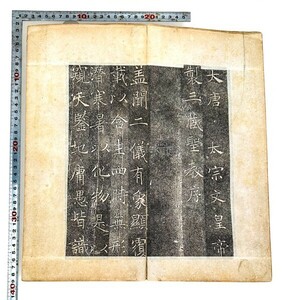 10 20
大唐太宗文皇帝
製三藏聖教序
盖聞二儀有象顯覆
載以含生四時無形
潛寒暑以化物是以
窺天鑒地庸愚皆識